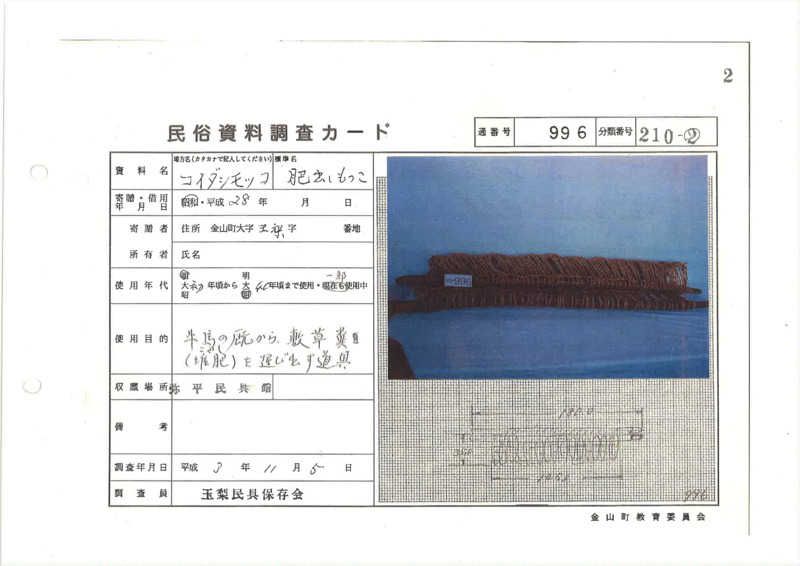 2
民俗資料調査カード
通番号 996 分類番号 210-②
資料名 地方名(カタカナで記入してください) コイダシモッコ 標準名 肥出しもっこ
寄贈・借用年月日 昭和・平成 28 年 月 日
寄贈者 住所 金山町大字 玉梨 字 番地
所有者 氏名
使用年代 明 大 昭 初 年頃から 明 大 昭 40 年頃まで使用・現在も使用中 一部
使用目的 牛馬の厩から、敷草糞
(堆肥)を運び出す道具
収蔵場所 弥平民具館
備考
調査年月日 平成 3 年 11 月 5 日
調査員 玉梨民具保存会
996
180.0
35.0
996
金山町教育委員会